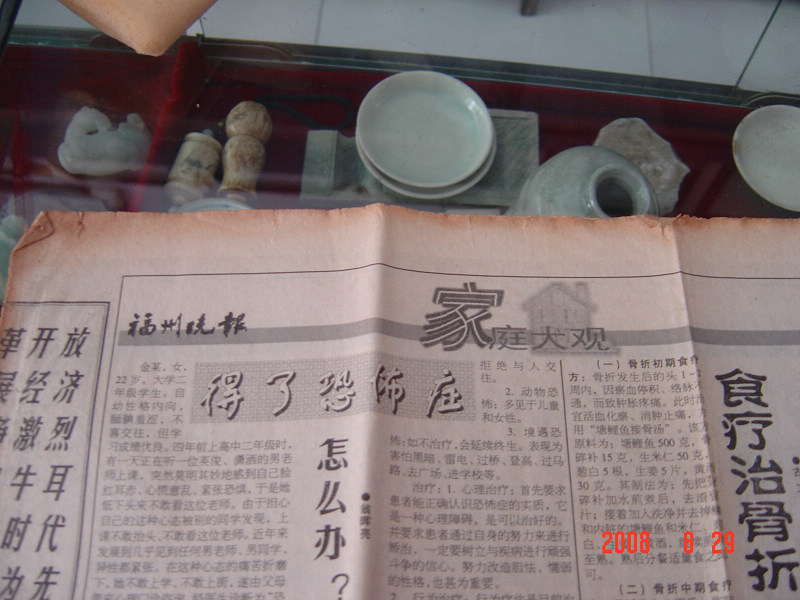 福州晚報
家庭大观
革开放
展经济
激烈
牛耳
时代
为先
得了恐怖症
怎么办？
金某,女,
22岁,大学二
年级学生。自
动性格内向,
腼腆羞涩,不
喜交往,但学
习成绩优良。四年前上高中二年级时,
有一天正在听一位英俊、潇洒的男老
师上课,突然莫明其妙地感到自己脸
红耳赤、心慌意乱、紧张恐惧,于是她
低下头来不敢看这位老师。由于担心
自己的这种心态被别的同学发现,上
课不敢抬头,不敢看这位老师。近年来
发展到几乎见到任何男老师、男同学、
异性都紧张。在这种心态的痛苦折磨
下,她不敢上学、不敢上街,遂由父母
拒绝与人交
往。
2.动物恐
怖:多见于儿童
和女性。
3.境遇恐
怖:如不治疗,会延续终生。表现为
害怕黑暗、雷电、过桥、登高、过马
路、去广场、进学校等。
治疗:1.心理治疗:首先要求
患者能正确认识恐怖症的实质,它
是一种心理障碍,是可以治好的。
并要求患者通过自身的努力来进行
矫治,一定要树立与疾病进行顽强
斗争的信心。努力改造胆怯、懦弱
的性格,也甚为重要。
食疗治骨折
(一)骨折初期食疗
方:骨折发生后的头1-
周内,因瘀血停积、络脉不
通,而致肿胀疼痛。此时
宜活血化瘀、消肿止痛,
用“塘鲺鱼接骨汤”。该
原料为:塘鲺鱼500克,骨
碎补15克,生米仁50克,
葱白5根,生姜5片,黄
30克。其制法为:先把
碎补加水煎煮后,去渣
汁;接着加入洗净并去掉
和内脏的塘鲺鱼和米仁
白、
至熟。熟后分餐适量食之
可。
(二)骨折中期食
2008 8 29